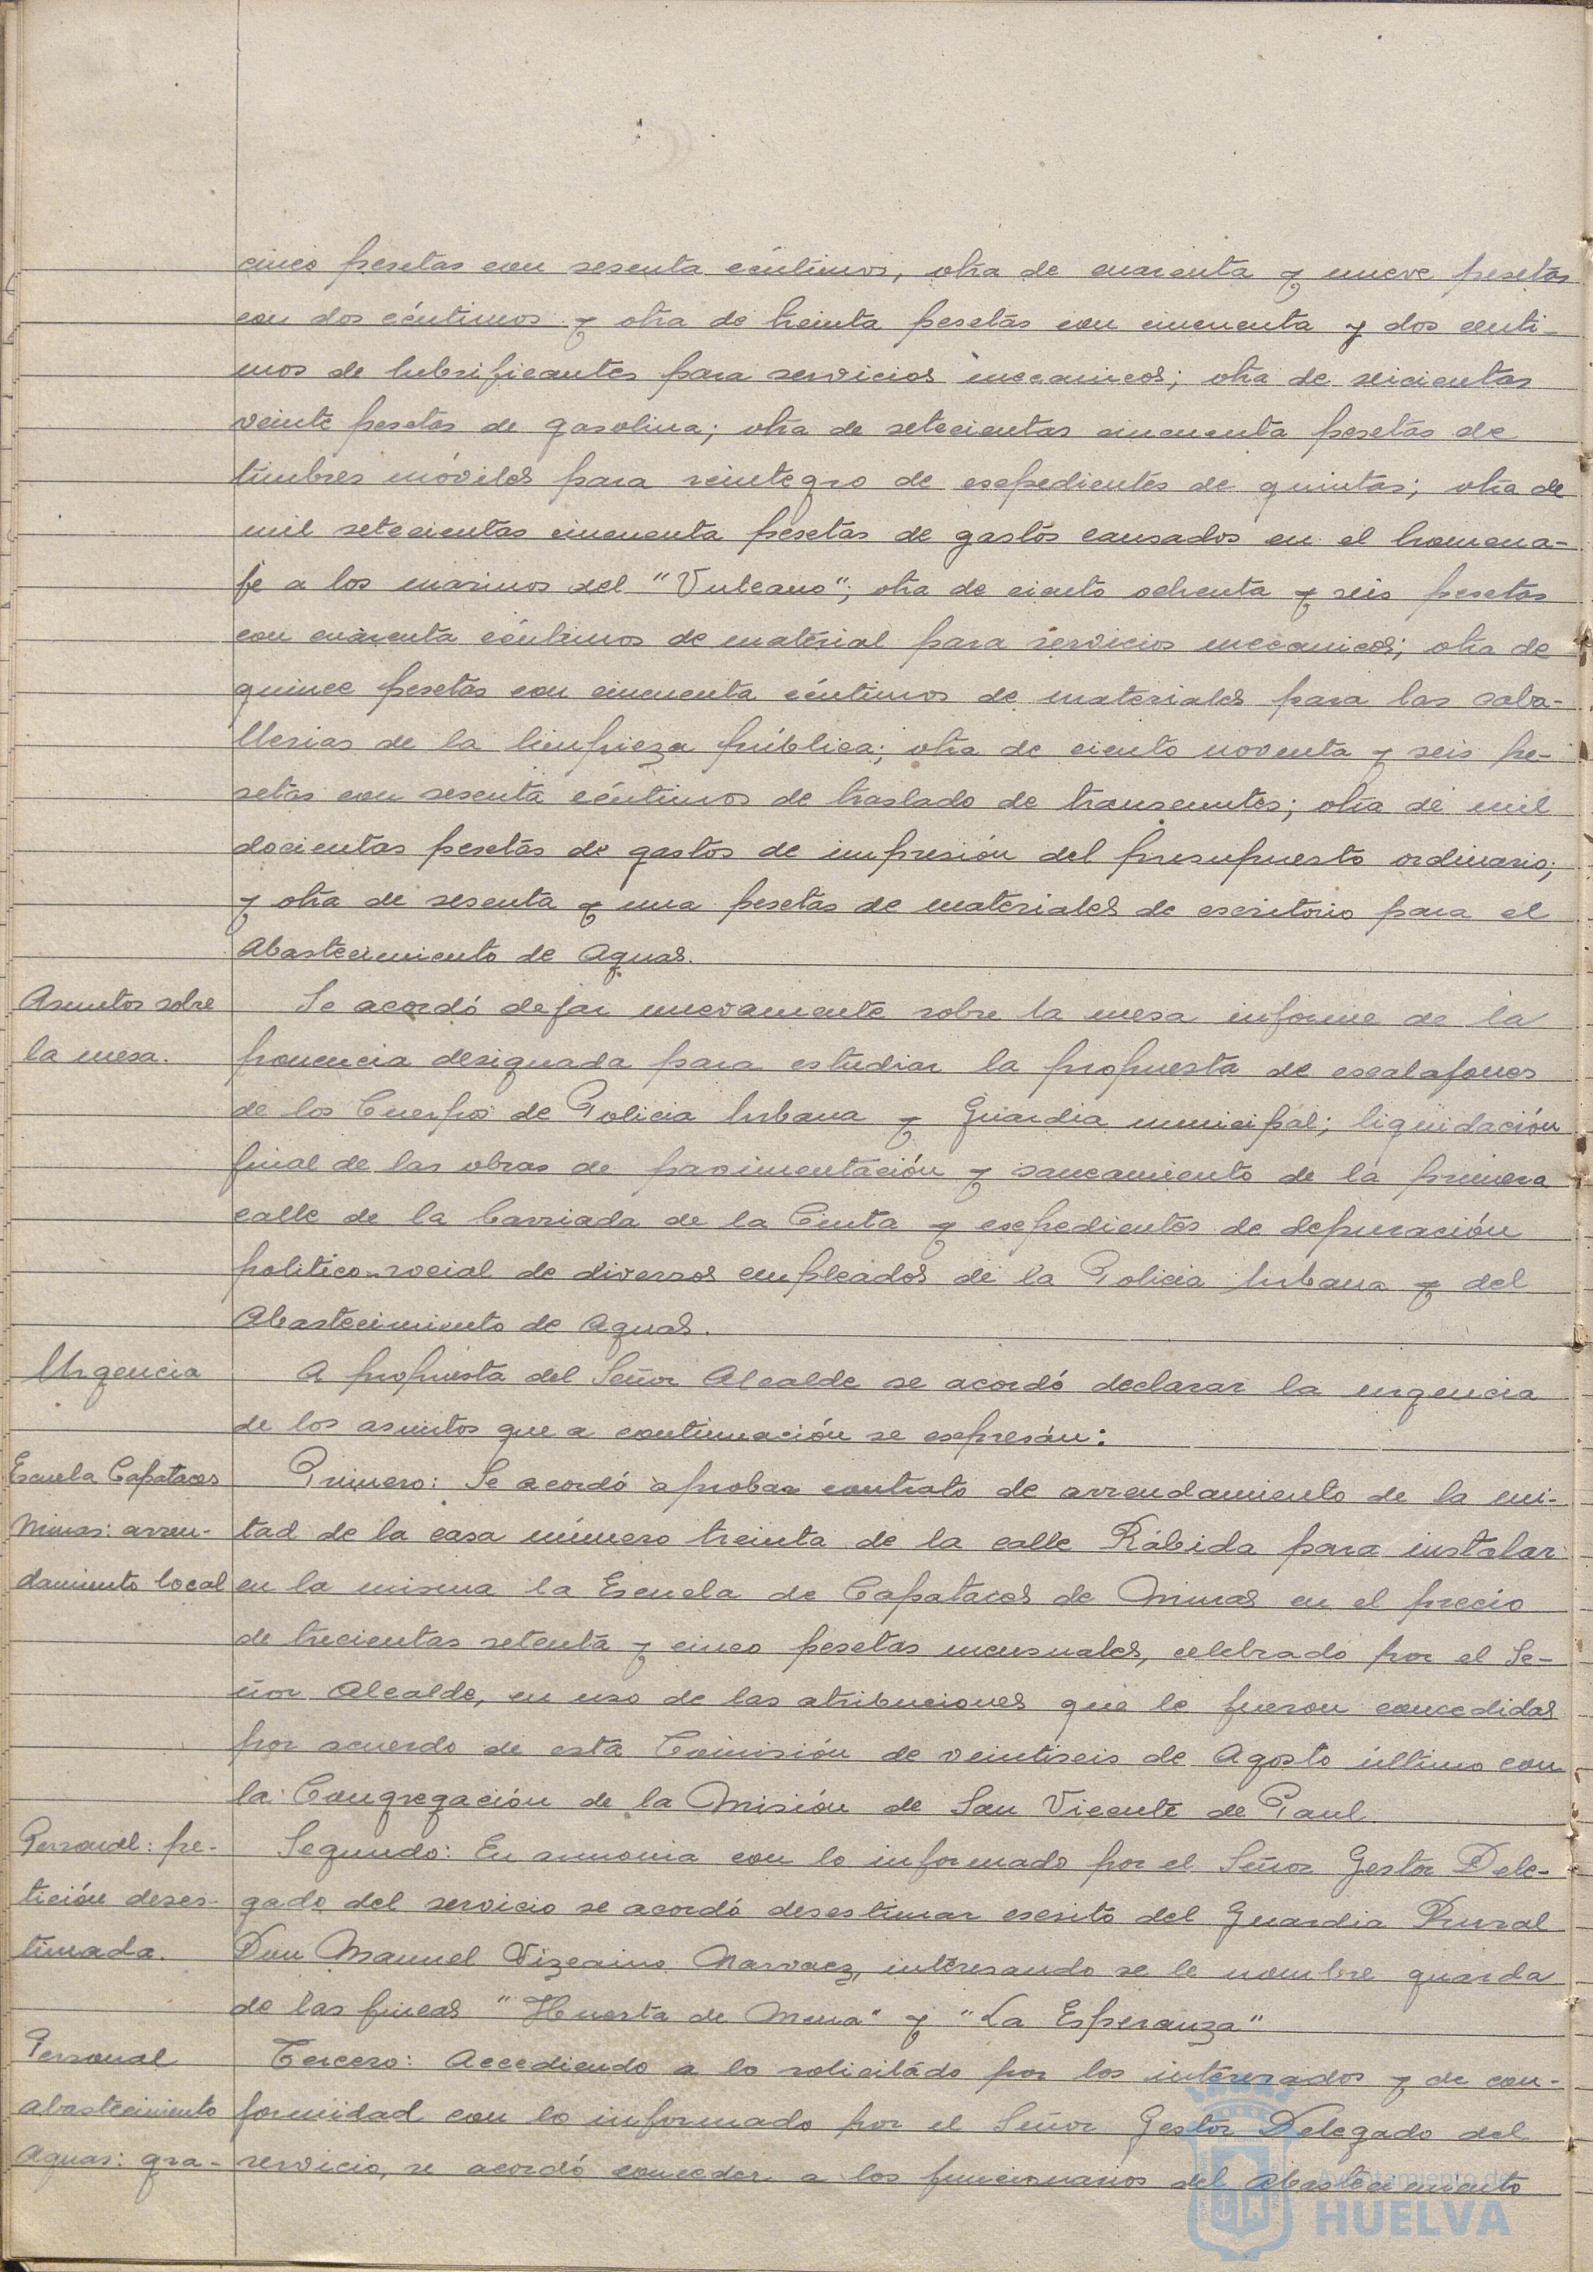 cinco pesetas con sesenta céntimos, otra de cuarenta y nueve pesetas
con dos céntimos y otra de treinta pesetas con cincuenta y dos centi-
mos de lubrificantes para servicios mecanicos; otra de seicientas
veinte pesetas de gasolina; otra de setecientas cincuenta pesetas de
timbres móviles para reintegro de esepedientes de quintas; otra de
mil setecientas cincuenta pesetas de gastos causados en el homena-
je a los marinos del "Vulcano"; otra de ciento ochenta y seis pesetas
con cuarenta céntimos de material para servicios mecanicos; otra de
quince pesetas con cincuenta céntimos de materiales para las caba-
llerias de la limpieza pública; otra de ciento noventa y seis pe-
setas con sesenta céntimos de traslado de transeuntes; otra de mil
docientas pesetas de gastos de impresión del presupuesto ordinario;
y otra de sesenta y una pesetas de materiales de escritorio para el
Abastecimiento de Aguas.
Asuntos sobre
la mesa.
Se acordó dejar nuevamente sobre la mesa informe de la
ponencia designada para estudiar la propuesta de escalafones
de los Cuerpos de Policia Urbana y Guardia municipal; liquidación
final de las obras de pavimentación y saneamiento de la primera
calle de la barriada de la Cinta y esepedientes de depuración
politico-social de diversos empleados de la Policia Urbana y del
Abastecimiento de Aguas.
Urgencia
A propuesta del Señor Alcalde se acordó declarar la urgencia
de los asuntos que a continuación se esepresán:
Escuela Capataces
Minas: arren-
damiento local
Primero: Se acordó aprobar contrato de arrendamiento de la mi-
tad de la casa número treinta de la calle Rábida para instalar
en la misma la Escuela de Capataces de Minas en el precio
de trecientas setenta y cinco pesetas mensuales, celebrado por el Se-
ñor Alcalde, en uso de las atribuciones que le fueron concedidas
por acuerdo de esta Comisión de veintiseis de Agosto último con
la Congregación de la Misión de San Vicente de Paul.
Personal: pe-
tición deses-
timada.
Segundo: En armonia con lo informado por el Señor Gestor Dele-
gado del servicio se acordó desestimar escrito del Guardia Rural
Don Manuel Vizcaino Narvaez, interesando se le nombre guarda
de las fincas "Huerta de Mena" y "La Esperanza"
Personal
abastecimiento
Aguas: gra-
Tercero: Accediendo a lo solicitádo por los interesados y de con-
formidad con lo informado por el Señor Gestor Delegado del
servicio, se acordó conceder a los funcionarios del Abastecimiento
Ayuntamiento de
HUELVA